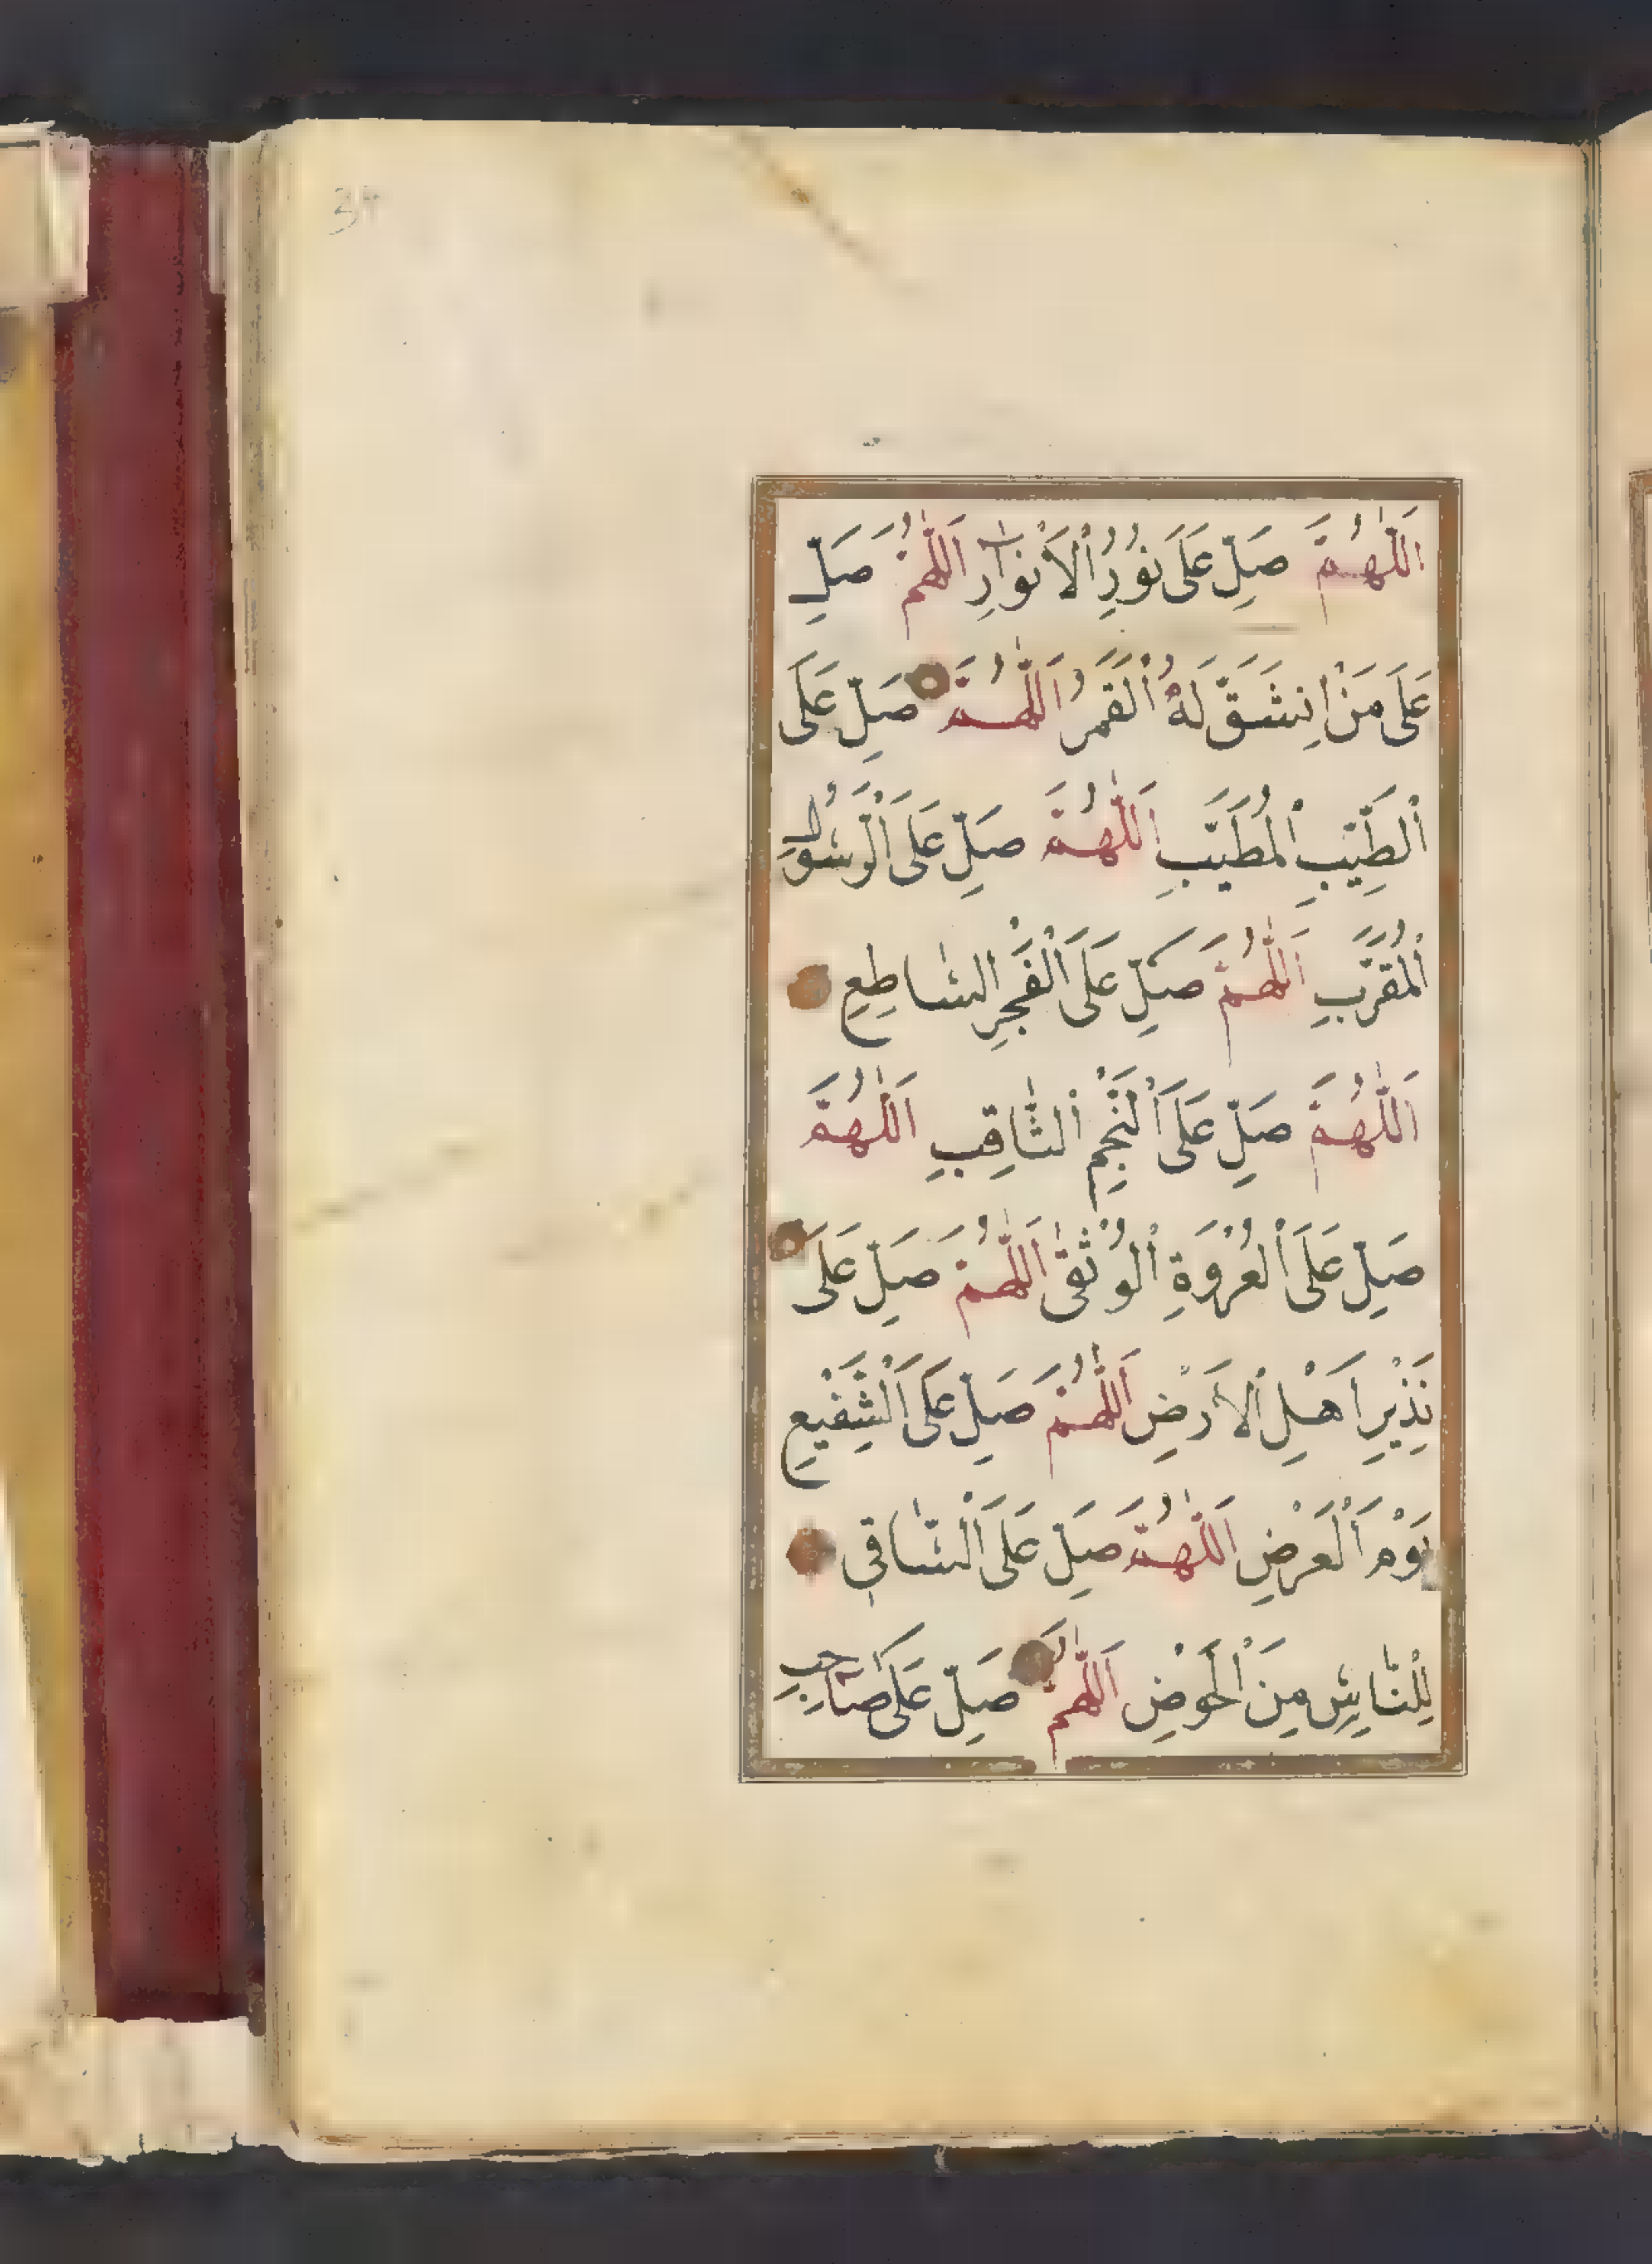 34
اَللّٰهُمَّ صَلِّ عَلَى نُوْرِ اْلاَنْوَارِ اَللّٰهُمَّ صَلِّ
عَلَى مَنْ اِنْشَقَّ لَهُ اْلقَمَرُ اَللّٰهُمَّ صَلِّ عَلَى
اْلطَّيِّبِ اْلمُطَيَّبِ اَللّٰهُمَّ صَلِّ عَلَى اْلرَّسُوْلِ
اْلمُقَرَّبِ اَللّٰهُمَّ صَلِّ عَلَى اْلفَجْرِ السَّاطِعِ
اَللّٰهُمَّ صَلِّ عَلَى اْلنَّجْمِ اْلثَّاقِبِ اَللّٰهُمَّ
صَلِّ عَلَى اْلعُرْوَةِ اْلوُثْقٰى اَللّٰهُمَّ صَلِّ عَلَى
نَذِيْرِ اَهْلِ اْلاَرْضِ اَللّٰهُمَّ صَلِّ عَلَى اْلشَّفِيْعِ
يَوْمَ اْلعَرْضِ اَللّٰهُمَّ صَلِّ عَلَى اْلسَّاقِي
لِلنَّاسِ مِنَ اْلحَوْضِ اَللّٰهُمَّ صَلِّ عَلَى صَاحِبِ